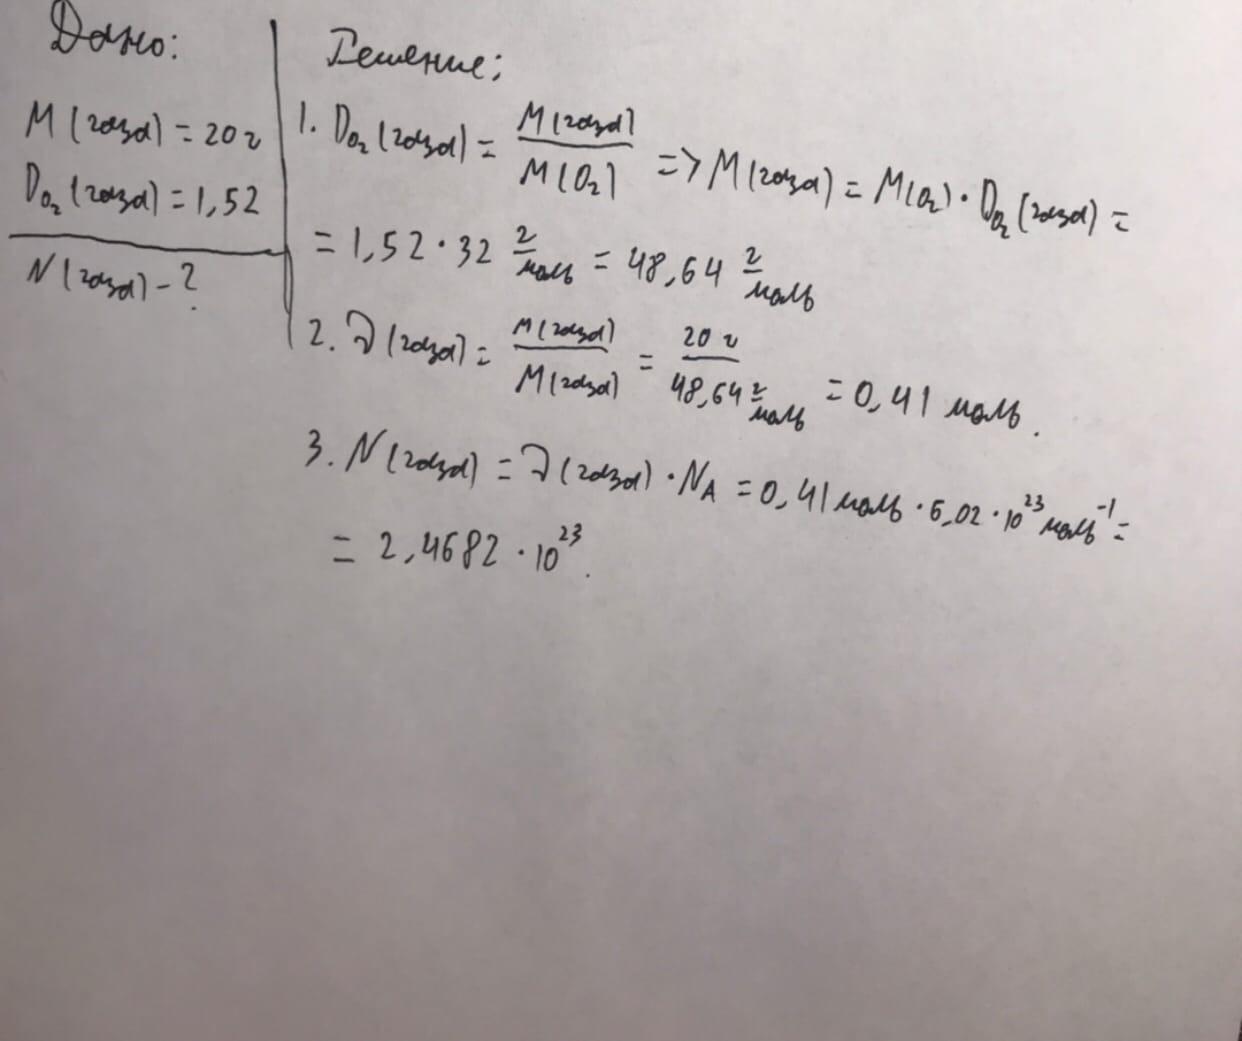 Дано:
M(газа) = 20 г
D_O₂(газа) = 1,52
N(газа) - ?
Решение:
1. D_O₂(газа) = M(газа) / M(O₂) => M(газа) = M(O₂) · D_O₂(газа) =
= 1,52 · 32 г/моль = 48,64 г/моль
2. ν(газа) = m(газа) / M(газа) = 20 г / 48,64 г/моль = 0,41 моль.
3. N(газа) = ν(газа) · N_A = 0,41 моль · 6,02 · 10²³ моль⁻¹ =
= 2,4682 · 10²³.